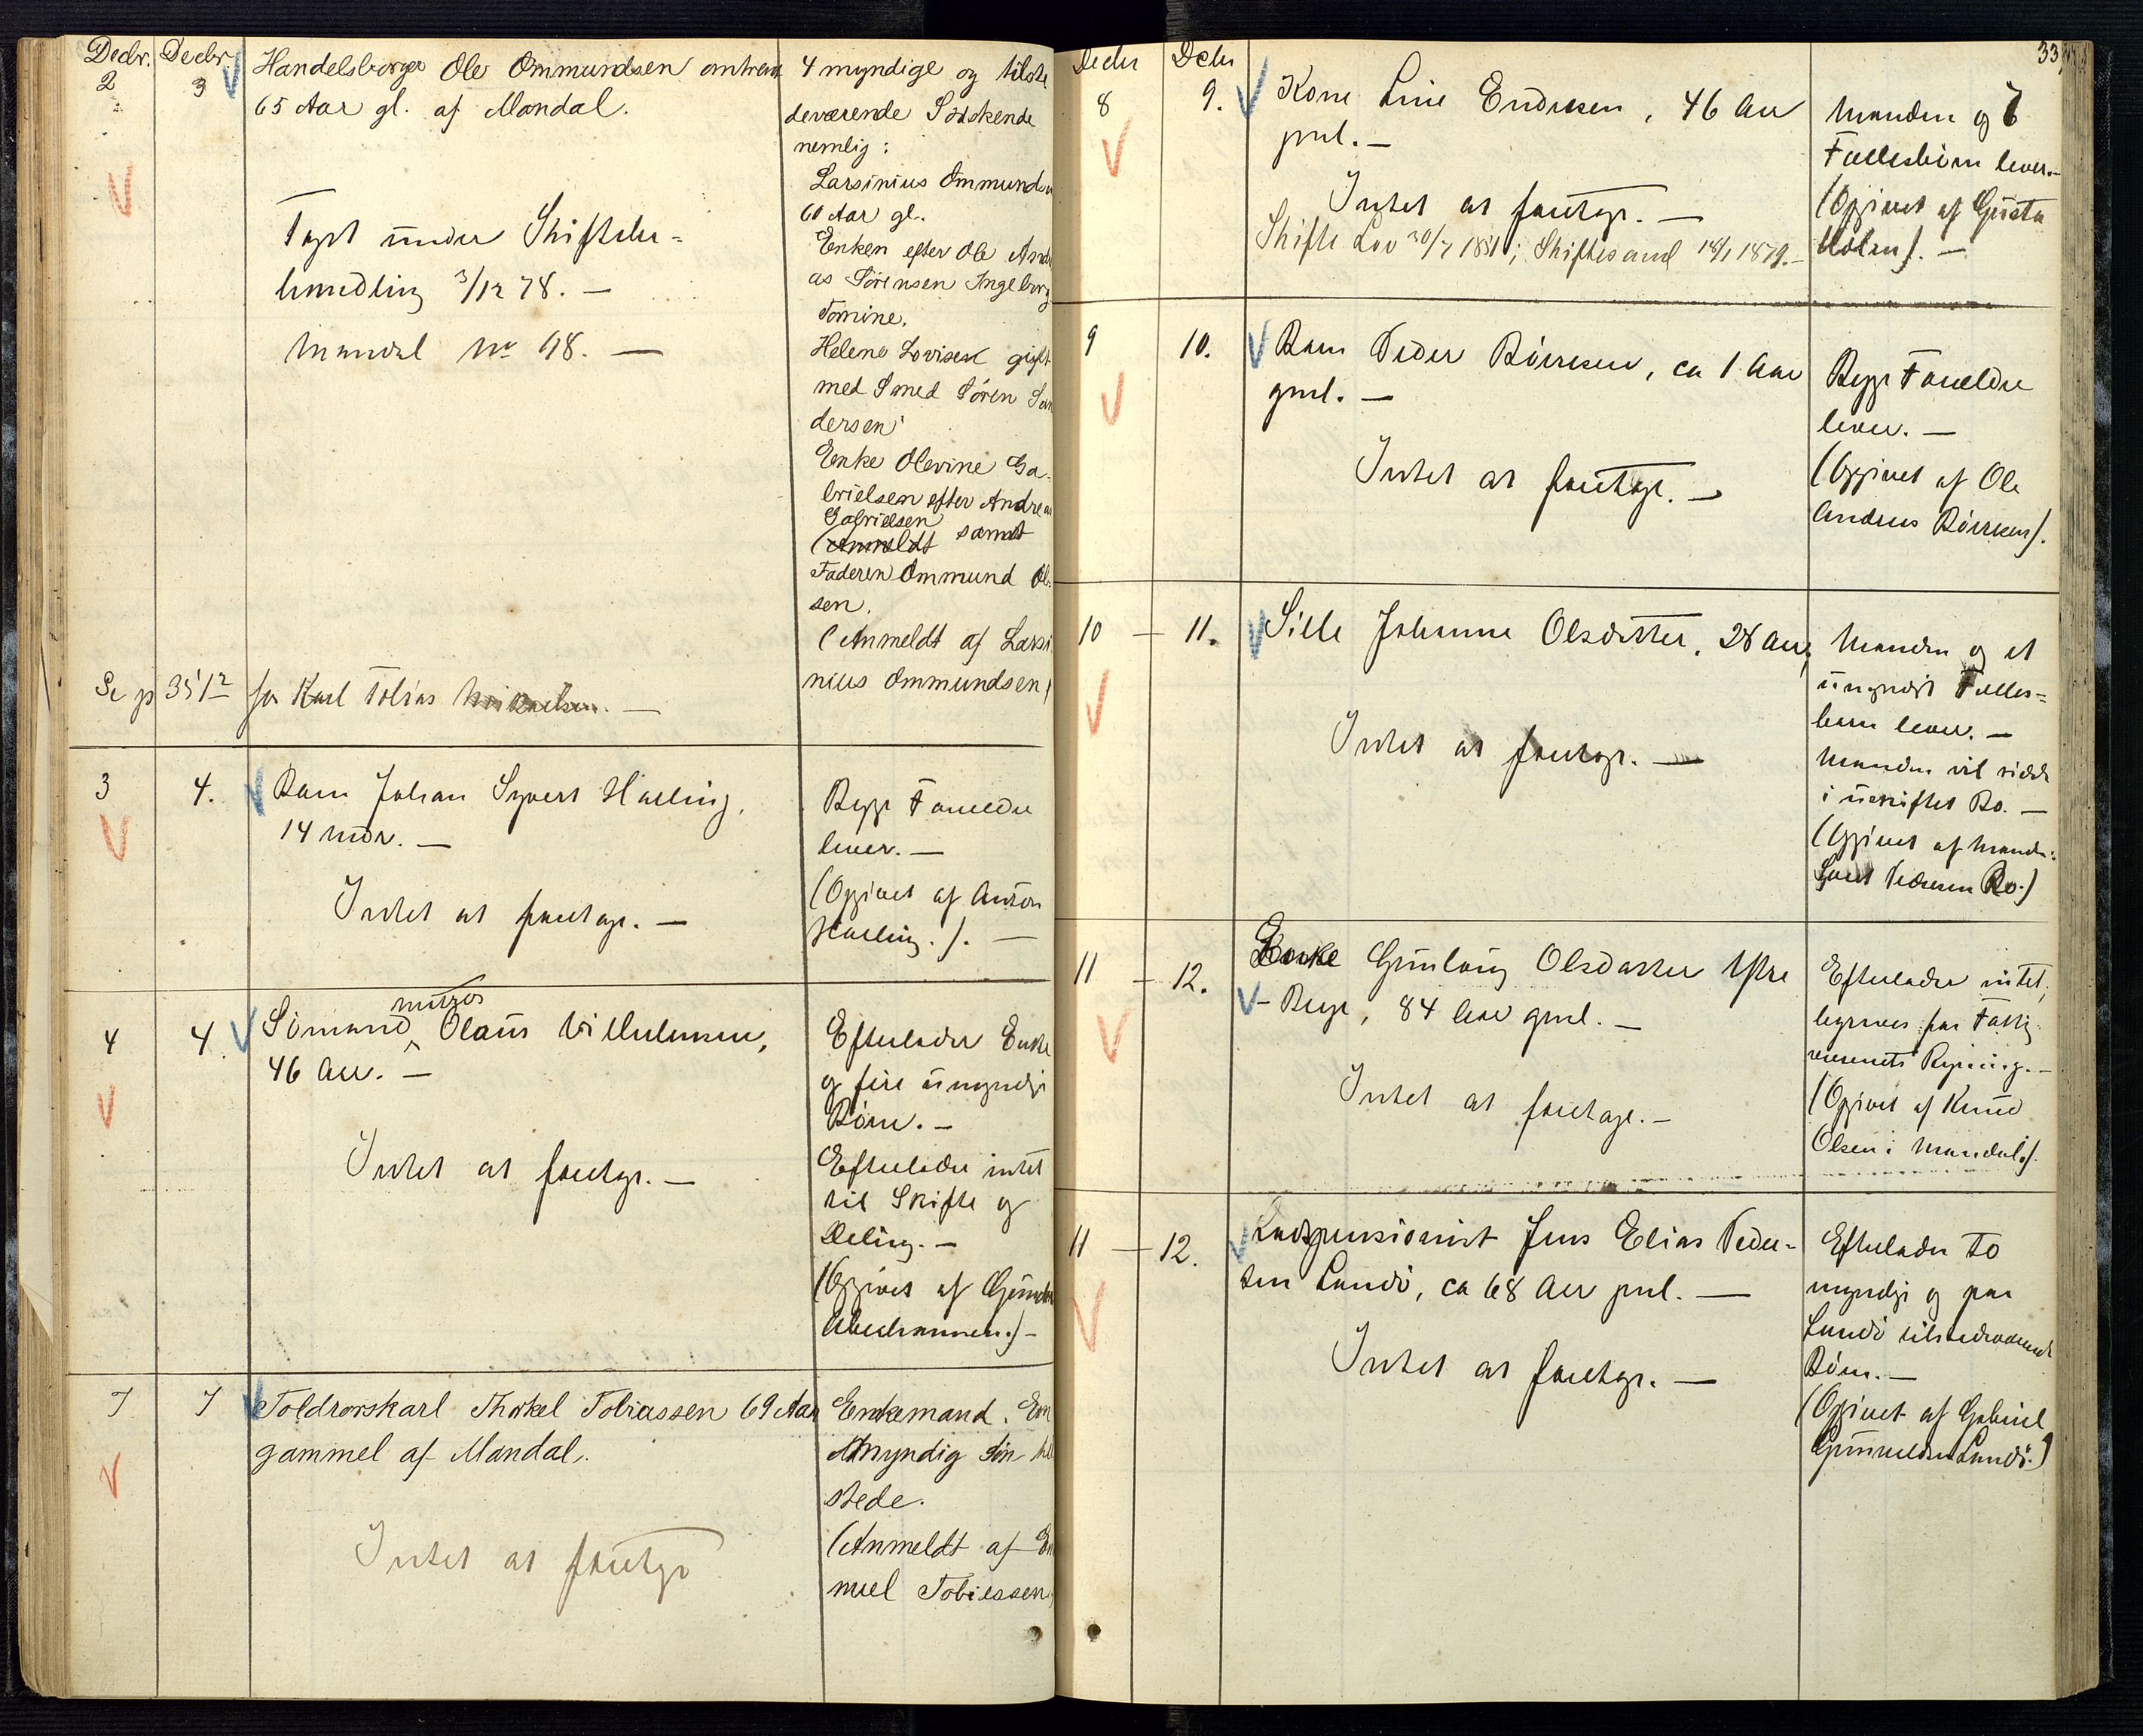 Decbr. Decbr
2 3 Handelsborger Ole Ommundsen omtrent
65 Aar gl. af Mandal.
Taget under Skiftebe-
handling 3/12 78. —
Mandal No 98. —
4 myndige og tilste
deværende Sødskende
nemlig:
Larsinius Ommundsen
60 Aar gl.
Enken efter Ole Andre
as Sørensen Ingeborg
Tomine.
Helene Lovise gift
med Smed Søren San
dersen
Enke Olevine Ga-
brielsen efter Andreas
Gabrielsen
(Anmeldt samt
Faderen Ommund Ol-
sen.
(Anmeldt af Larsi
nius Ommundsen)
Se p 351 2 for Karl Tobias
3 4. Barn Johan Syvert Halling,
14 Mdr. —
Intet at foretage. —
Begge Forældre
lever. —
(Opgivet af Anton
Halling.). —
4 4. Sømand Olaus Wilhelmsen,
46 Aar. —
Intet at foretage. —
Efterlader Enke
og fire umyndige
Børn. —
Efterlader intet
til Skifte og
Deling. —
(Opgivet af Gunder
Abrahamsen.) —
7 7 Toldrorskarl Thorkel Tobiassen 69 Aar
gammel af Mandal.
Intet at foretage
Enkemand. En
myndig Søn
stede.
(Anmeldt af
nuel Tobiassen)
33
Decbr Decbr
8 9. Kone Line Endresen, 46 Aar
gml. —
Intet at foretage. —
Skifte Lov 30/7 1851; Skiftesaml 18/1 1879. —
Manden og 6
Fællesbørn lever. —
(Opgivet af Gusta
Holm). —
9 10. Barn Peder Børresen, ca 1 Aar
gml. —
Intet at foretage. —
Begge Forældre
lever. —
(Opgivet af Ole
Andreas Børresen).
10 — 11. Sille Johanne Olsdatter, 28 Aar,
Intet at foretage. —
Manden og et
umyndigt Fælles-
barn lever. —
Manden vil sidde
i uskiftet Bo. —
(Opgivet af Manden:
Pedersen Bo.)
11 — 12. Enke Gunlaug Olsdatter Ystre
- Berge, 84 Aar gml. —
Intet at foretage. —
Efterlader intet,
begraves for Fattig-
væsenets Regning. —
(Opgivet af Knud
Olsen i Mandal.).
11 — 12. Ladspensionist Jens Elias Peder-
sen Landø, ca 68 Aar gml. —
Intet at foretage. —
Efterlader to
myndige og paa
Landø tilstedeværende
Børn. —
(Opgivet af Gabriel
Gunneldsen Landø.)